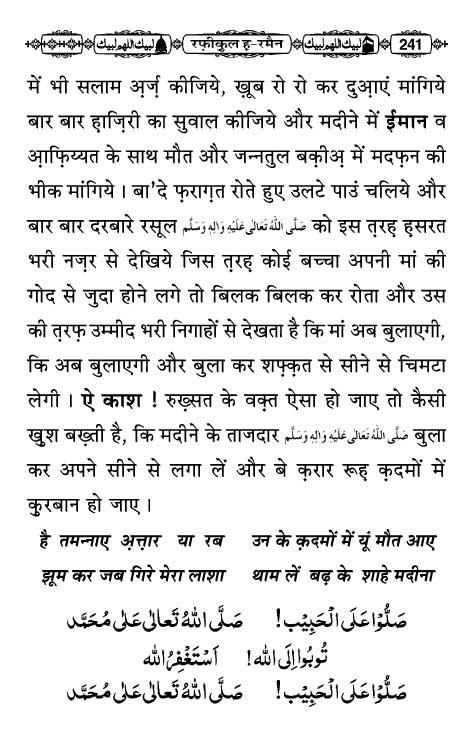 لبیك اللهم لبیك रफ़ीकुल ह-रमैन لبیك اللهم لبیك 241
में भी सलाम अ़र्ज़ कीजिये, ख़ूब रो रो कर दुआ़एं मांगिये
बार बार ह़ाज़िरी का सुवाल कीजिये और मदीने में ईमान व
आ़फ़िय्यत के साथ मौत और जन्नतुल बक़ीअ़ में मदफ़न की
भीक मांगिये । बा'दे फ़राग़त रोते हुए उलटे पाउं चलिये और
बार बार दरबारे रसूल صَلَّى اللهُ تَعَالٰى عَلَيْهِ وَاٰلِهٖ وَسَلَّم को इस त़रह़ ह़सरत
भरी नज़र से देखिये जिस त़रह़ कोई बच्चा अपनी मां की
गोद से जुदा होने लगे तो बिलक बिलक कर रोता और उस
की त़रफ़ उम्मीद भरी निगाहों से देखता है कि मां अब बुलाएगी,
कि अब बुलाएगी और बुला कर शफ़्क़त से सीने से चिमटा
लेगी । ऐ काश ! रुख़्सत के वक़्त ऐसा हो जाए तो कैसी
ख़ुश बख़्ती है, कि मदीने के ताजदार صَلَّى اللهُ تَعَالٰى عَلَيْهِ وَاٰلِهٖ وَسَلَّم बुला
कर अपने सीने से लगा लें और बे क़रार रूह़ क़दमों में
क़ुरबान हो जाए ।
है तमन्नाए अ़त्तार या रब उन के क़दमों में यूं मौत आए
झूम कर जब गिरे मेरा लाशा थाम लें बढ़ के शाहे मदीना
صَلُّوْا عَلَى الْحَبِيْب! صَلَّى اللهُ تَعَالٰى عَلٰى مُحَمَّد
تُوْبُوْا اِلَى الله! اَسْتَغْفِرُ الله
صَلُّوْا عَلَى الْحَبِيْب! صَلَّى اللهُ تَعَالٰى عَلٰى مُحَمَّد